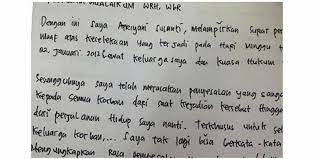 WRH, WBR
Dengan ini saya Apriyani Susanti, melampirkan surat per
maaf atas kecelakaan yang terjadi pada hari minggu t
22 Januari 2012 lewat keluarga saya dan kuasa hukum
Sesungguhnya saya telah merasakan penyesalan yang sanga
kepada semua korban dari saat kejadian tersebut hingga
dari perjalanan hidup saya nanti. Terkhusus untuk sel
keluarga korban,... saya tak lagi bisa berkata-kata
mengungkapkan rasa